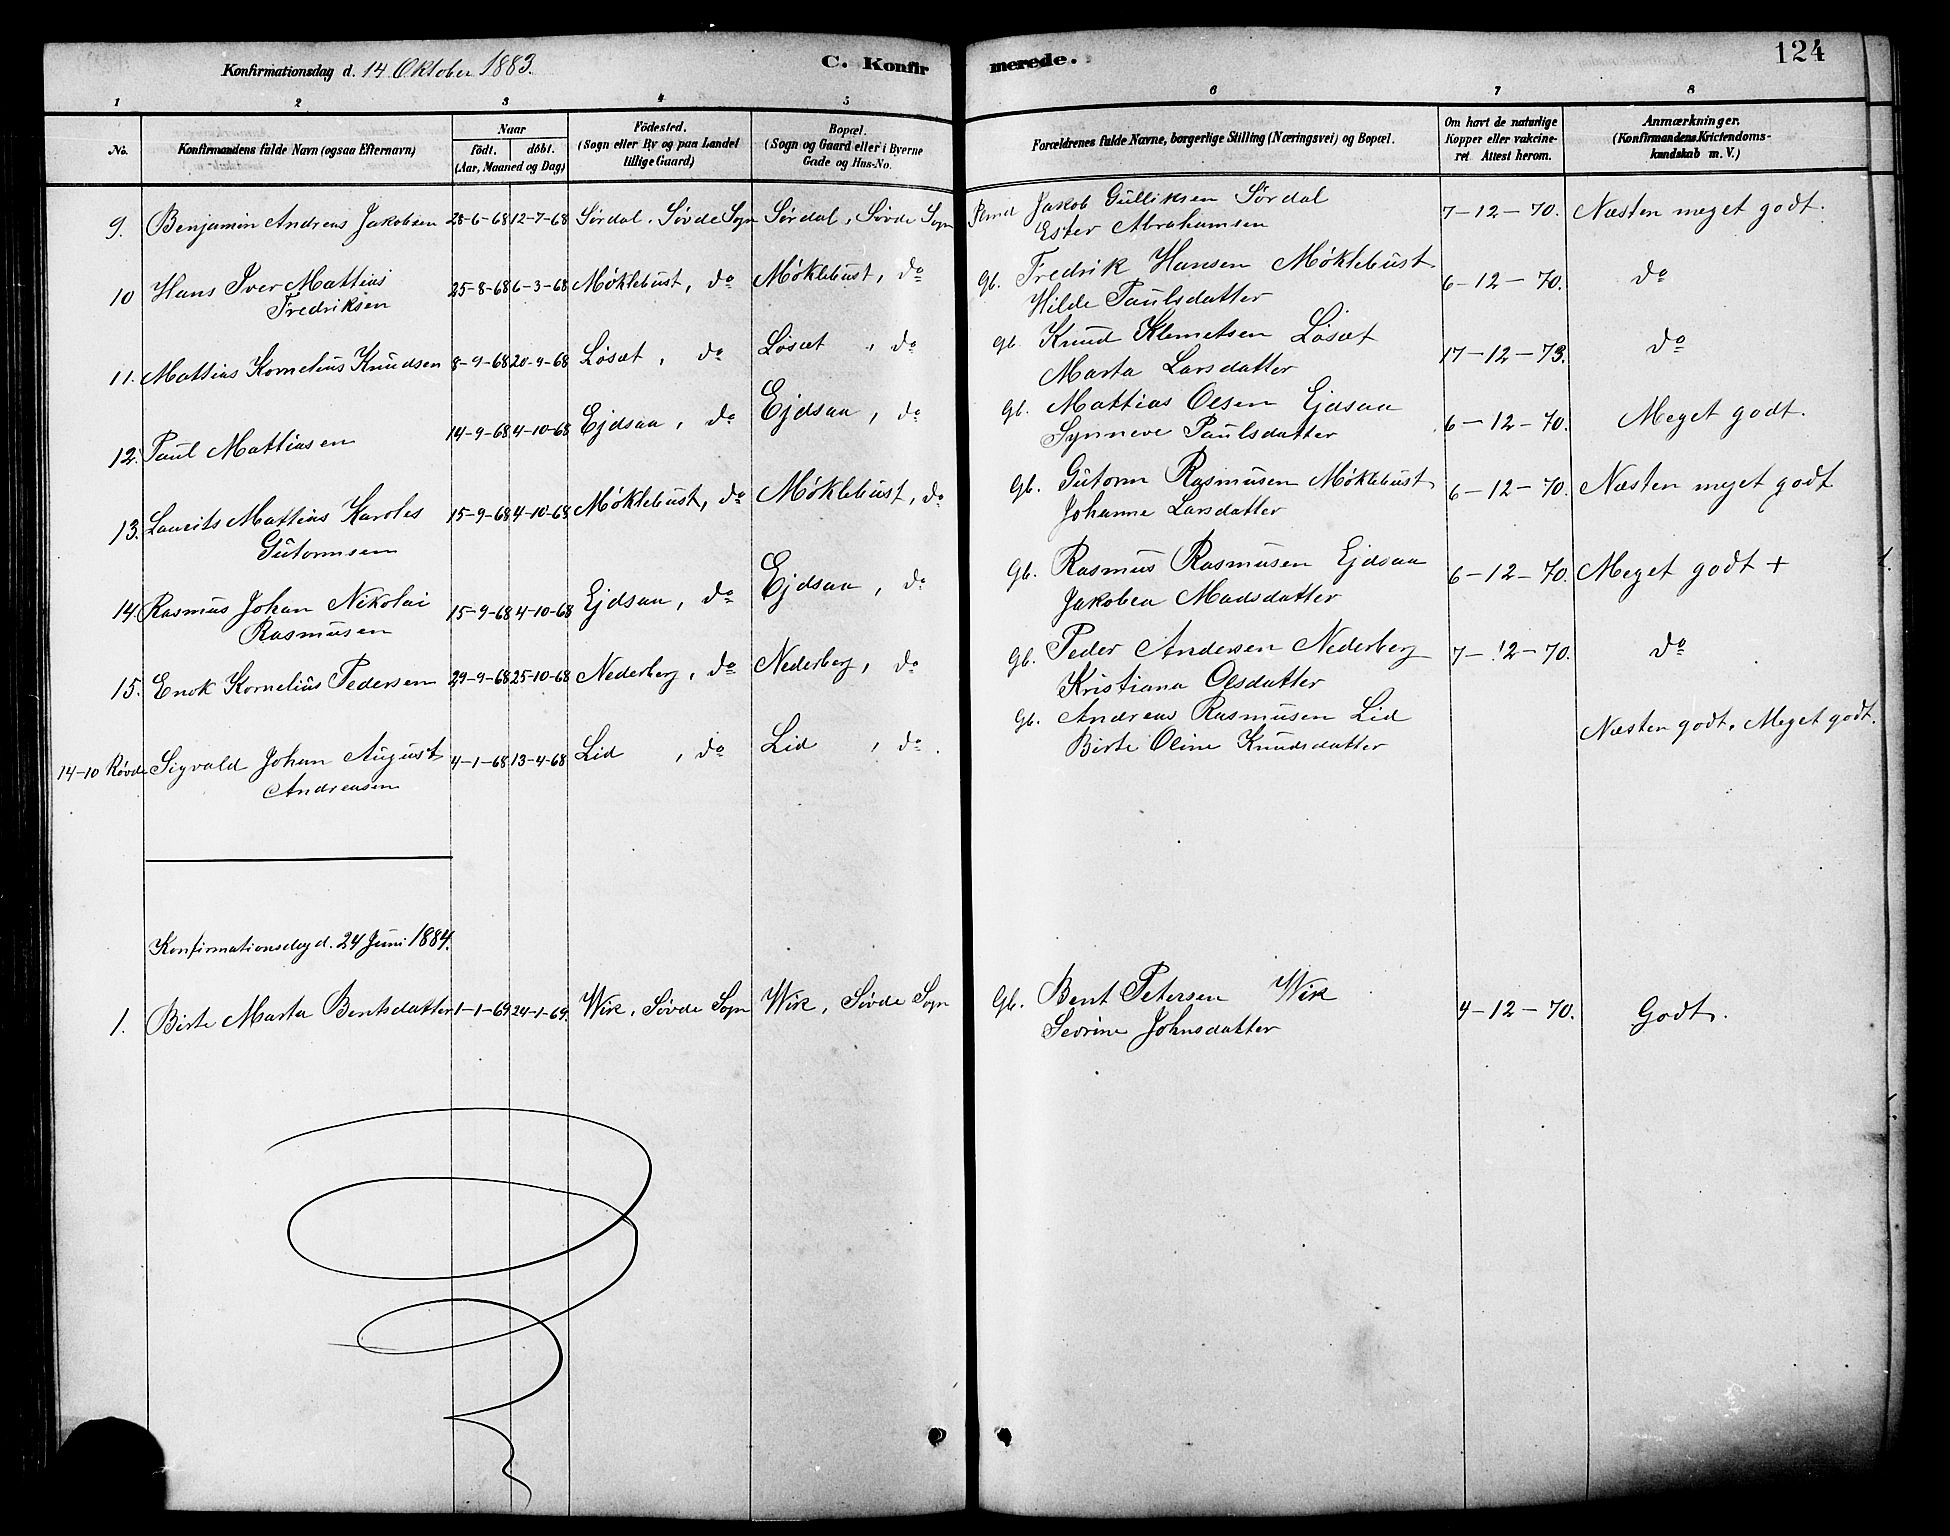 Konfirmationsdag d. 14 Oktober 1883.
C. Konfirmerede.
124
1 2 3 4 5 6 7 8
No.
Konfirmandens fulde Navn (ogsaa Efternavn)
Naar
födt. döbt.
(Aar, Maaned og Dag)
Födested.
(Sogn eller By og paa Landet
tillige Gaard)
Bopæl.
(Sogn og Gaard eller i Byerne
Gade og Hus-No.
Forældrenes fulde Navne, borgerlige Stilling (Næringsvei) og Bopæl.
Om havt de naturlige
Kopper eller vakcine-
ret Attest herom.
Anmærkninger.
(Konfirmandens Kristendoms-
kundskab m. V.)
9. Benjamin Andreas Jakobsen 28-6-68 12-7-68 Sørdal, Søvde Sogn Sørdal, Søvde Sogn Jakob Gulliksen Sørdal 7-12-70. Næsten meget godt.
Ester Abrahamsen
10 Hans Iver Mattias 25-8-68 6-3-68 Møklebust, do Møklebust, do Gb. Fredrik Hansen Møklebust 6-12-70. do
Fredriksen Hilde Paulsdatter
11. Mattias Kornelius Knudsen 8-9-68 20-9-68 Løsæt, do Løsæt, do Gb. Knud Klemetsen Løsæt 17-12-73. do
Marta Larsdatter
12. Paul Mattiasen 14-9-68 4-10-68 Ejdsaa, do Ejdsaa, do Gb. Mattias Olsen Ejdsaa 6-12-70. Meget godt.
Synneve Paulsdatter
13. Laurits Mattias Karoles 15-9-68 4-10-68 Møklebust, do Møklebust, do Gb. Gutorm Rasmusen Møklebust 6-12-70. Næsten meget godt
Gutormsen Johanne Larsdatter
14. Rasmus Johan Nikolai 15-9-68 4-10-68 Ejdsaa, do Ejdsaa, do Gb. Rasmus Rasmusen Ejdsaa 6-12-70. Meget godt +
Rasmusen Jakobea Madsdatter
15. Enok Kornelius Pedersen 29-9-68 25-10-68 Nederberg, do Nederberg, do Gb. Peder Andersen Nederberg 7-12-70. do
Kristiana Olsdatter
14-10 Røvde Sigvald Johan August 4-1-68 13-4-68 Lid, do Lid, do. Gb. Andreas Rasmusen Lid Næsten godt, Meget godt.
Andreasen Birte Oline Knudsdatter
Konfirmationsdag d. 24 Juni 1884.
1. Birte Marta Bentsdatter 1-1-69 24-1-69. Wik, Søvde Sogn Wik, Søvde Sogn Gb. Bent Petersen Wik 4-12-70. Godt.
Sevrine Johnsdatter